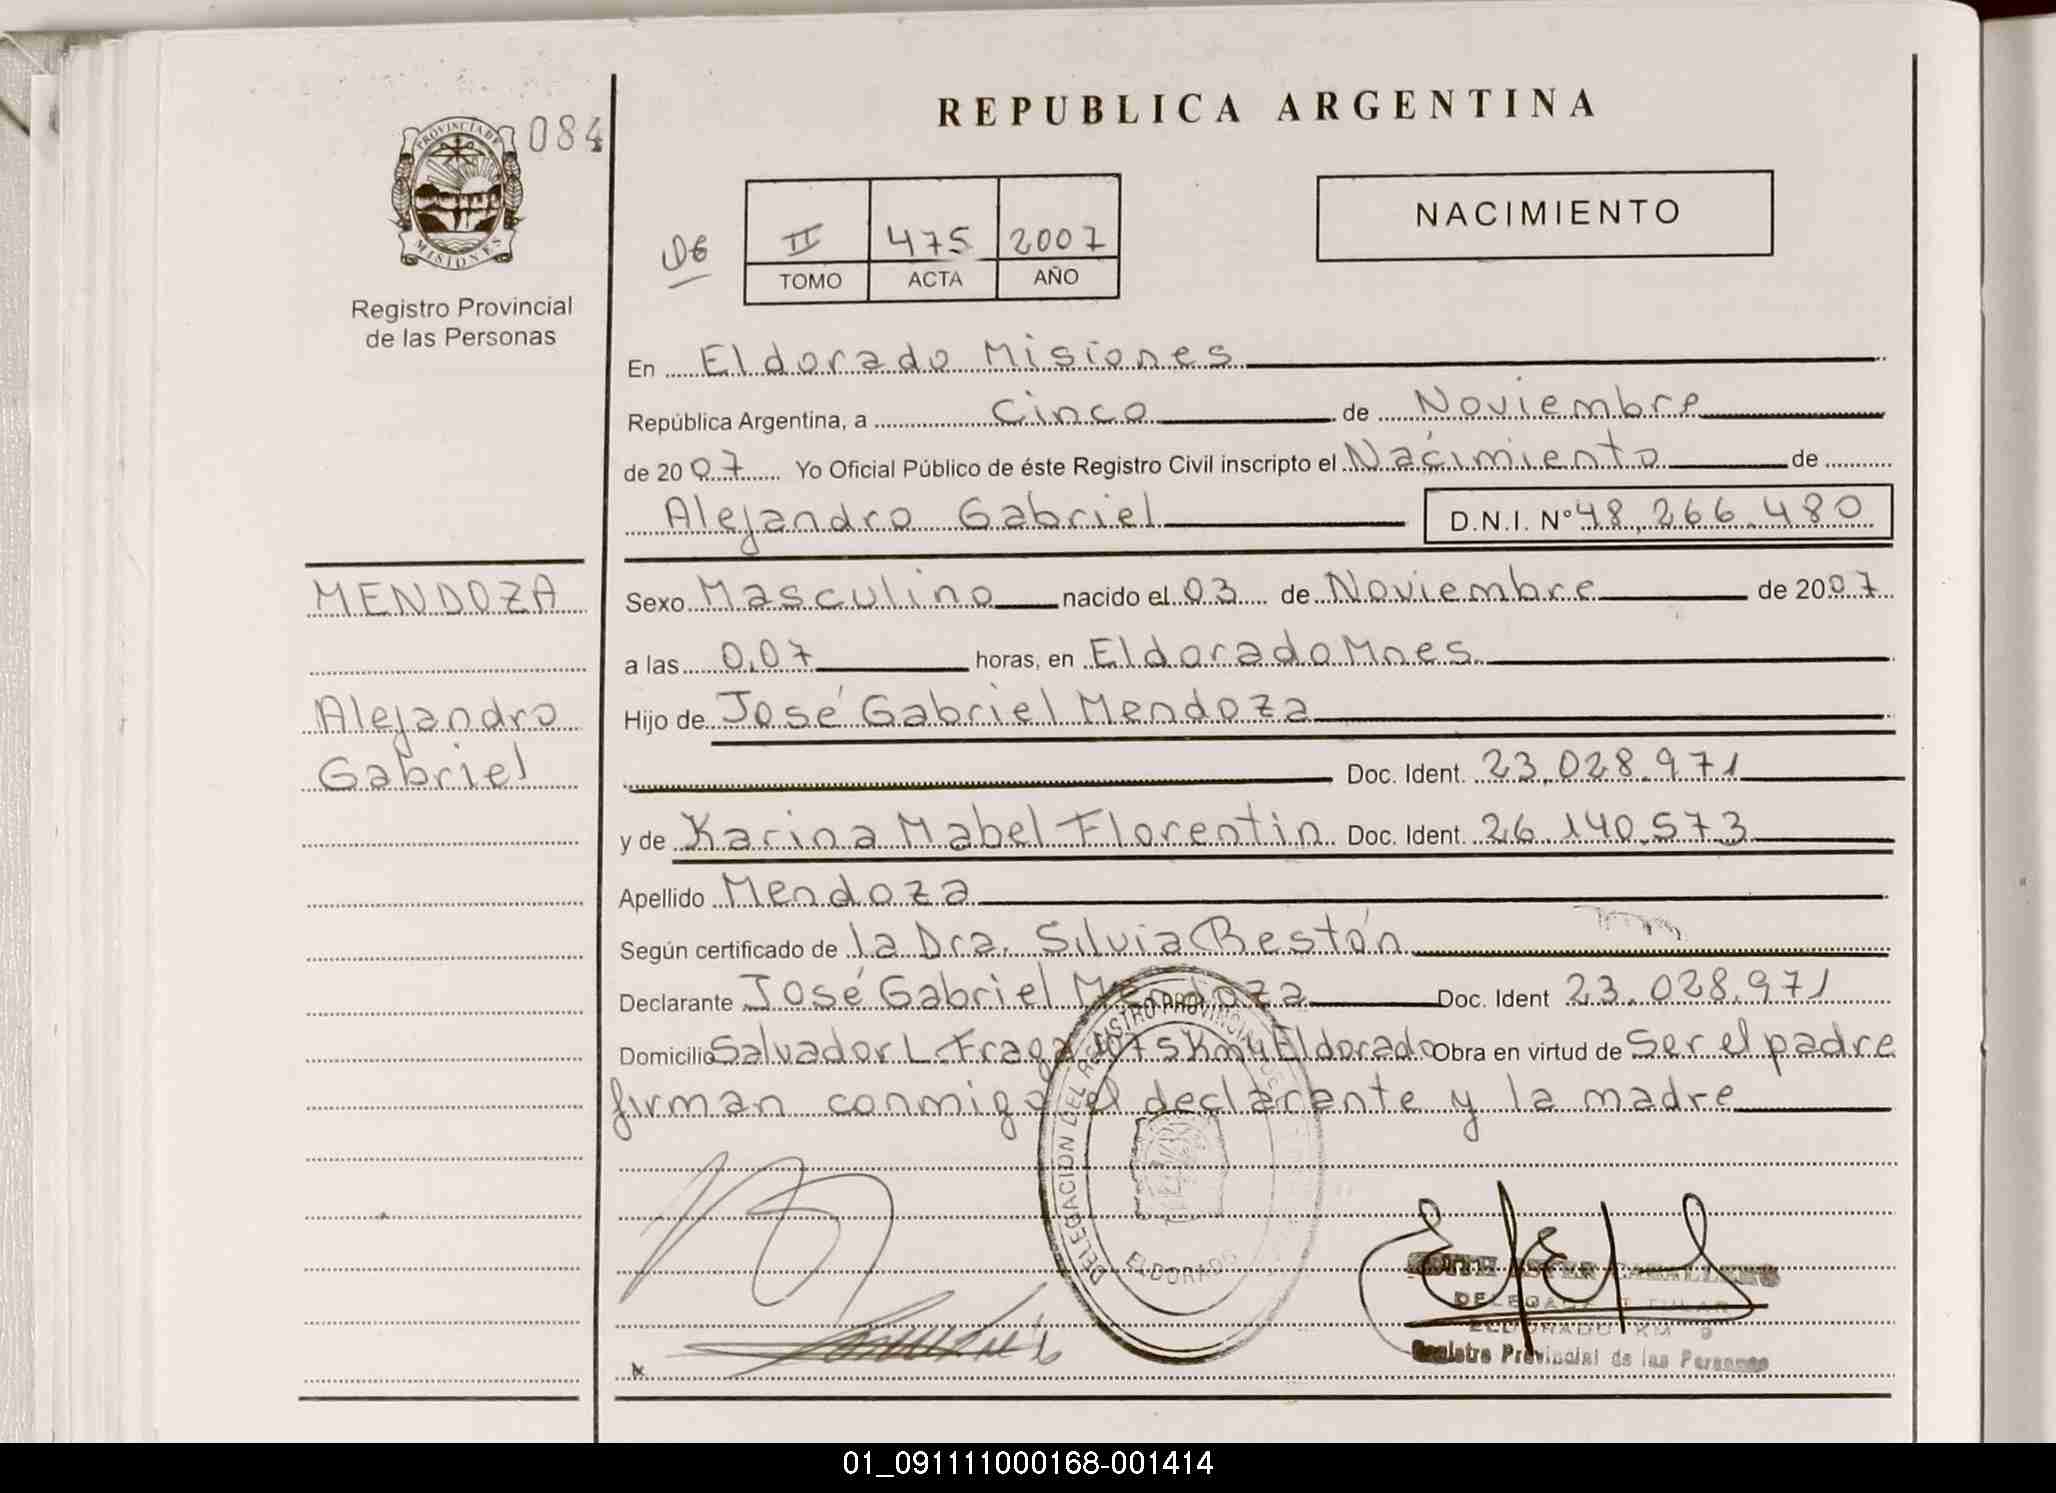 084
PROVINCIA DE
MISIONES
Registro Provincial
de las Personas
REPUBLICA ARGENTINA
II 475 2007
TOMO ACTA AÑO
NACIMIENTO
En Eldorado Misiones
República Argentina, a cinco de Noviembre
de 2007 Yo Oficial Público de éste Registro Civil inscripto el Nacimiento de
Alejandro Gabriel D.N.I. Nº 48,266.480
MENDOZA
Alejandro
Gabriel
Sexo Masculino nacido el 03 de Noviembre de 2007
a las 0,07 horas, en Eldorado Mnes
Hijo de José Gabriel Mendoza
Doc. Ident. 23,028.971
y de Karina Mabel Florentin Doc. Ident. 26.140.573
Apellido Mendoza
Según certificado de la Dra. Silvia Restón
Declarante José Gabriel Mendoza Doc. Ident 23.028.971
Domicilio Salvador L. Fraga 1075 Km 4 Eldorado Obra en virtud de Ser el padre
firman conmigo el declarante y la madre
DELEGACION DEL REGISTRO PROVINCIAL
ELDORADO
EDITH ESTER CABALLERO
DELEGADA TITULAR
ELDORADO KM 9
Registro Provincial de las Personas
01_091111000168-001414